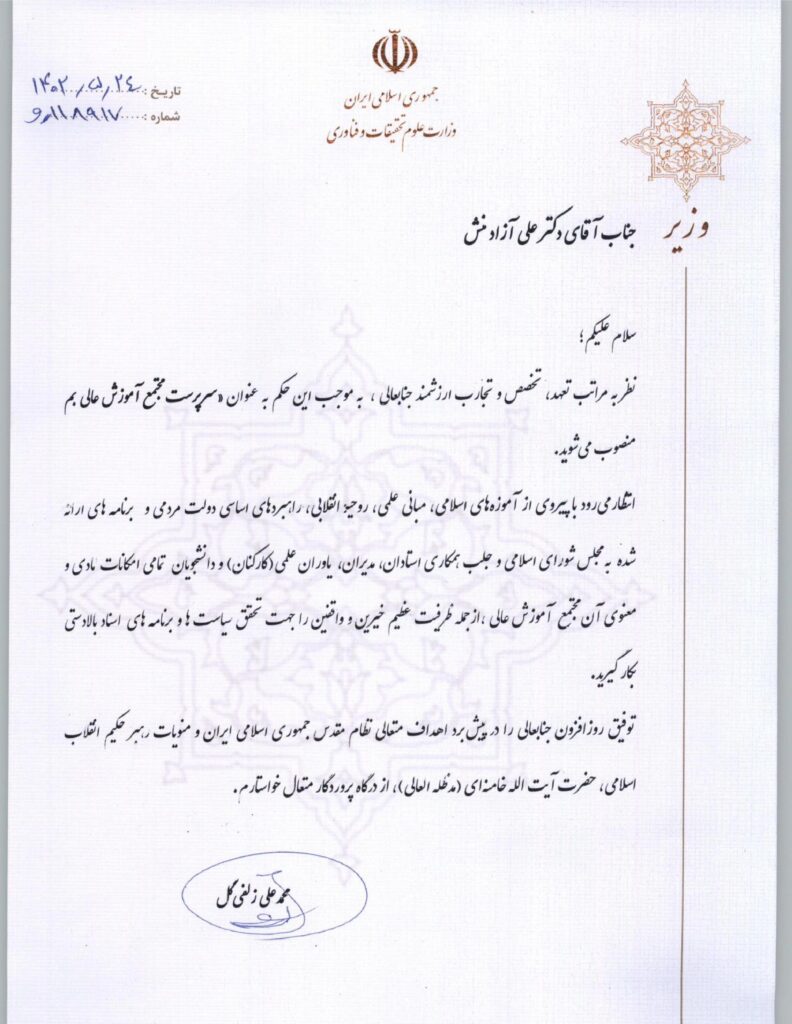 جمهوری اسلامی ایران
وزارت علوم تحقیقات و فناوری
تاریخ : ۱۴۰۲٫۵٫۲۴
شماره : ۱۱۸۹۱۷
وزیر
جناب آقای دکتر علی آزادمنش
سلام علیکم؛
نظر به مراتب تعهد، تخصص و تجارب ارزشمند جنابعالی ، به موجب این حکم به عنوان «سرپرست مجتمع آموزش عالی بم
منصوب می‌شوید.
انتظار می‌رود با پیروی از آموزه‌های اسلامی، مبانی علمی، روحیۀ انقلابی، راهبردهای اساسی دولت مردمی و برنامه های ارائه
شده به مجلس شورای اسلامی و جلب همکاری استادان، مدیران، یاوران علمی (کارکنان) و دانشجویان تمامی امکانات مادی و
معنوی آن مجتمع آموزش عالی ،از جمله ظرفیت عظیم خیرین و واقفین را جهت تحقق سیاست ها و برنامه های اسناد بالادستی
بکار گیرید.
توفیق روزافزون جنابعالی را در پیش برد اهداف متعالی نظام مقدس جمهوری اسلامی ایران و منویات رهبر حکیم انقلاب
اسلامی، حضرت آیت الله خامنه‌ای (مدظله العالی)، از درگاه پروردگار متعال خواستارم.
محمد علی زلفی گل